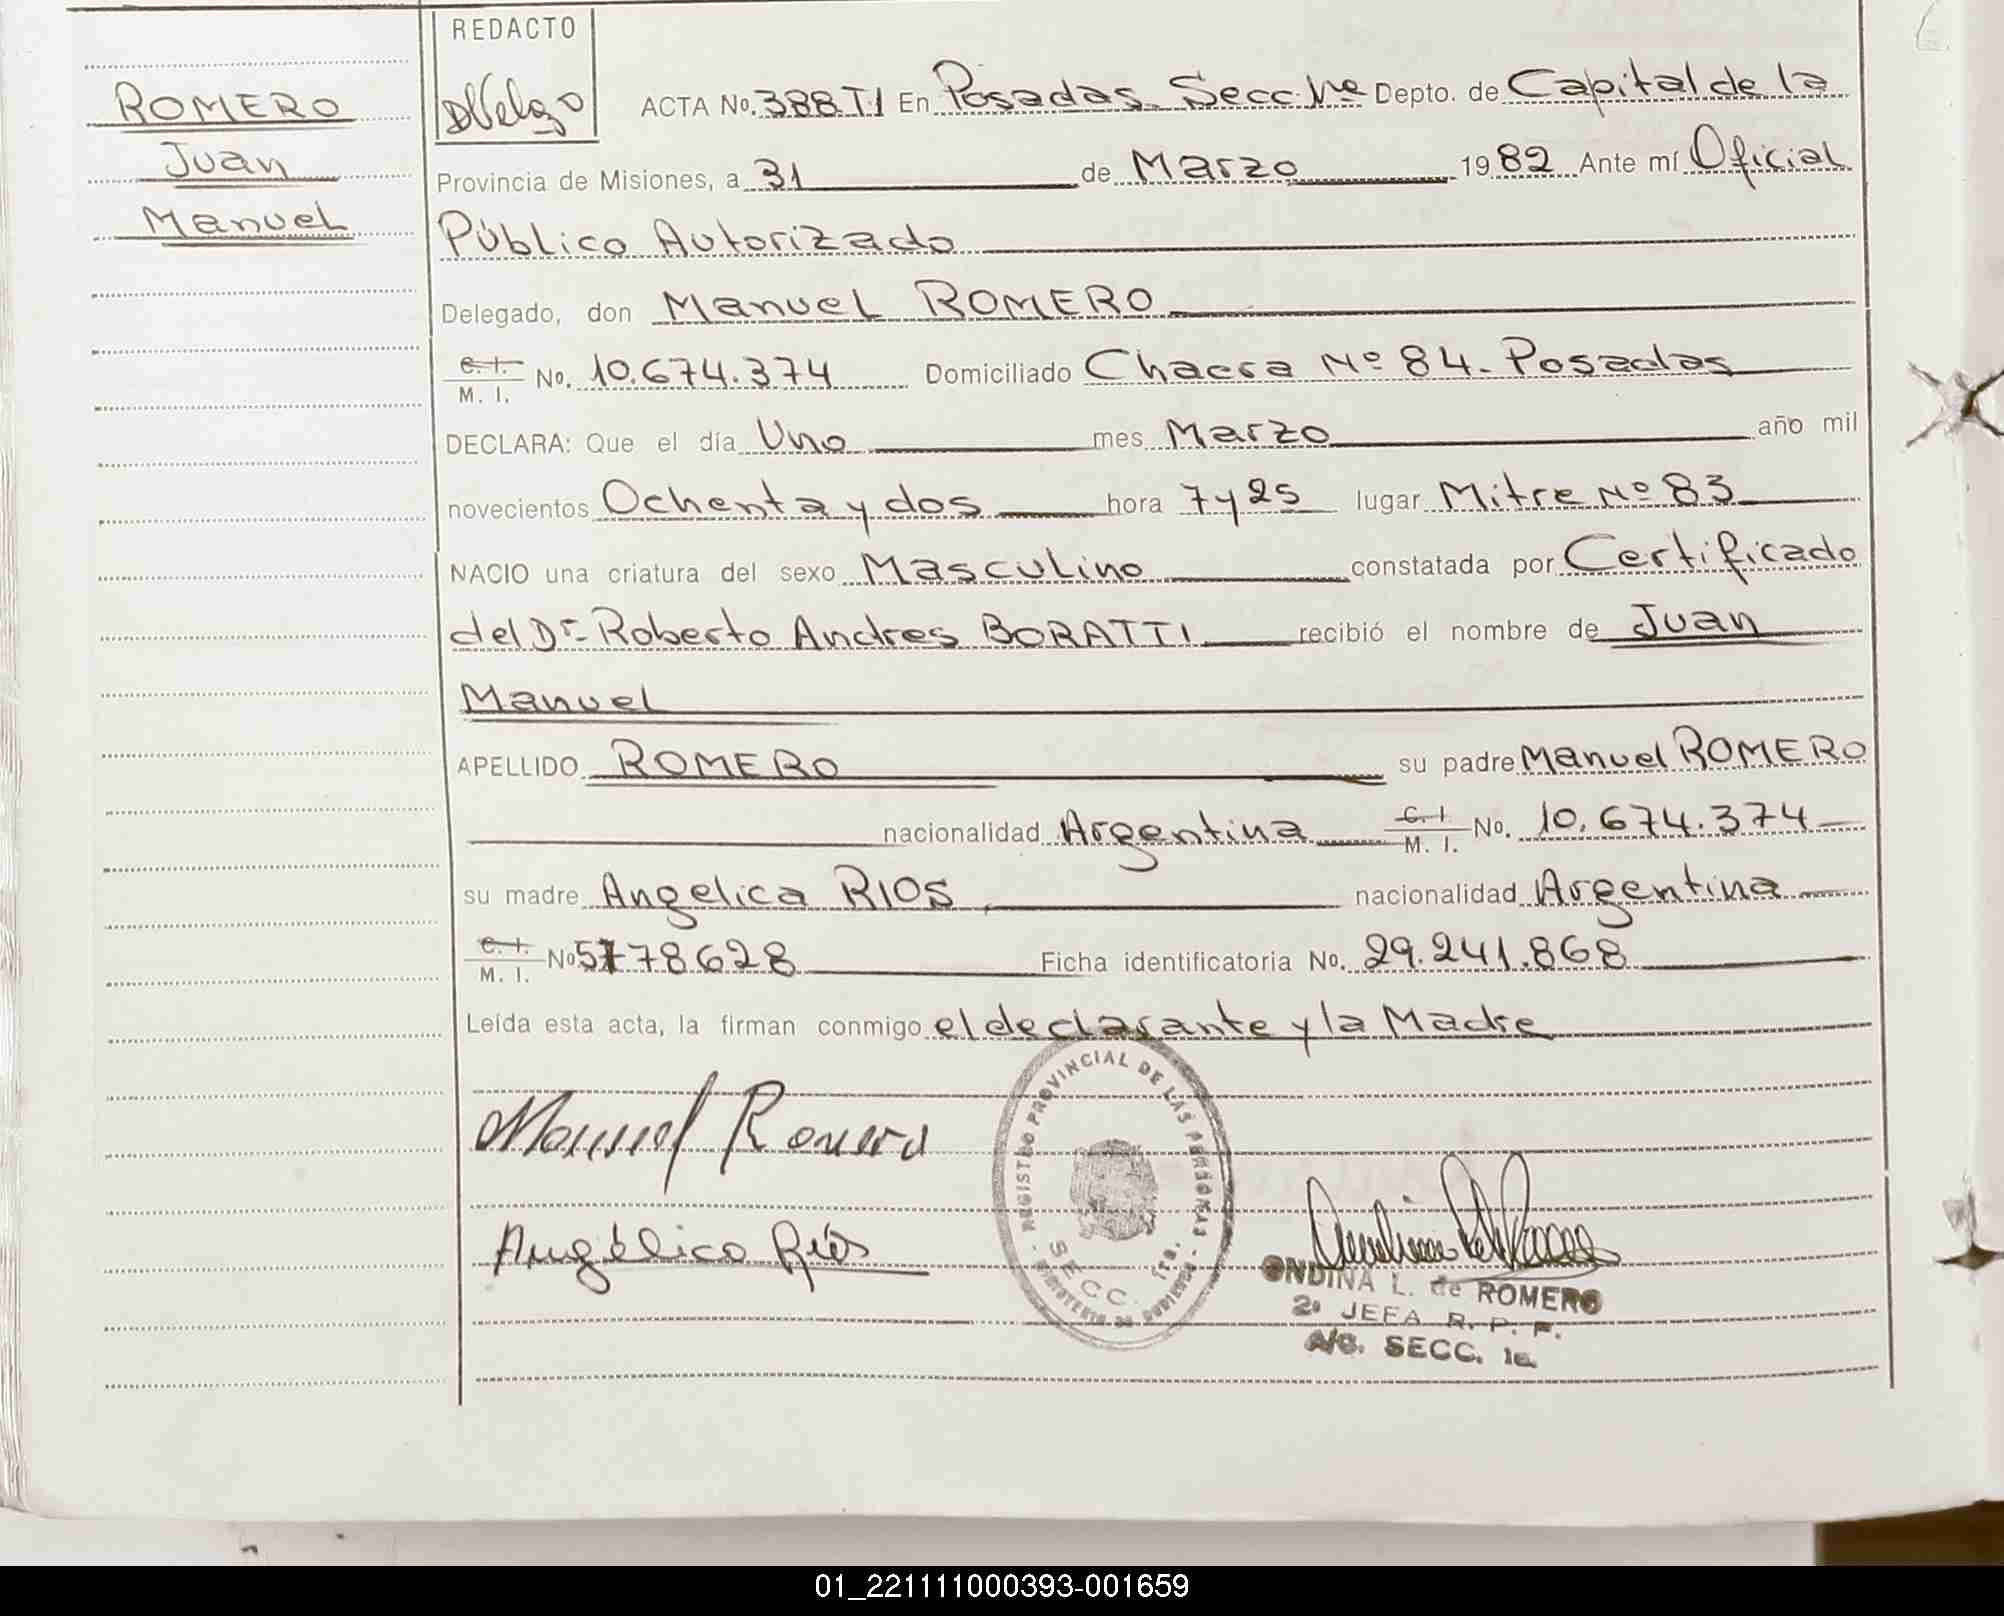 REDACTO
ROMERO
Juan
Manuel
ACTA No. 388 T1 En Posadas. Secc. 1ra Depto. de Capital de la
Provincia de Misiones, a 31 de Marzo 1982 Ante mí Oficial
Público Autorizado
Delegado, don Manuel ROMERO
C. I.
M. I. No. 10.674.374 Domiciliado Chacra Nº 84. Posadas
DECLARA: Que el día Uno mes Marzo año mil
novecientos Ochenta y dos hora 7 y 25 lugar Mitre Nº 83
NACIO una criatura del sexo Masculino constatada por Certificado
del Dr. Roberto Andres BORATTI recibió el nombre de Juan
Manuel
APELLIDO ROMERO su padre Manuel ROMERO
nacionalidad Argentina C. I. M. I. No. 10.674.374
su madre Angelica RIOS nacionalidad Argentina
C. I.
M. I. No 5778628 Ficha identificatoria No. 29.241.868
Leída esta acta, la firman conmigo el declarante y la Madre
Manuel Romero
Angélica Ríos
REGISTRO PROVINCIAL DE LAS PERSONAS
SECC. 1ra.
MINISTERIO DE GOBIERNO
ONDINA L. de ROMERO
2a JEFA R. P. P.
A/C. SECC. 1a.
01_221111000393-001659